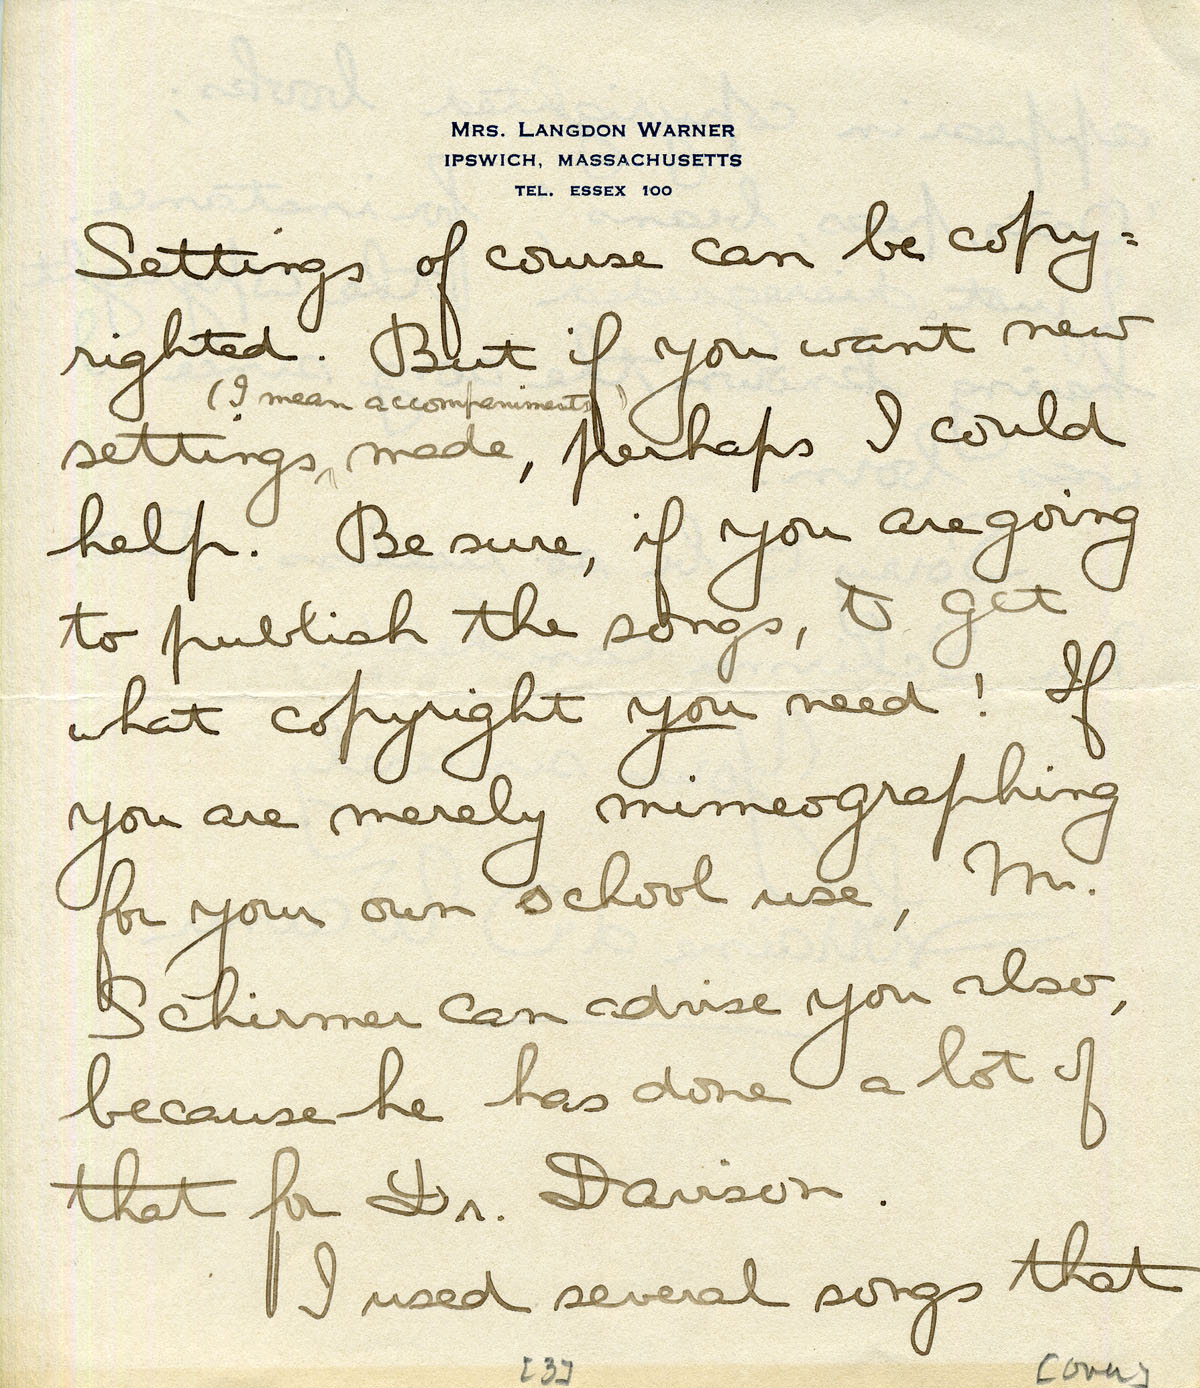 MRS. LANGDON WARNER
IPSWICH, MASSACHUSETTS
TEL. ESSEX 100
Settings of course can be copy=
righted. But if you want new
(I mean accompaniments)
settings, made, perhaps I could
help. Be sure, if you are going
to publish the songs, to get
what copyright you need! If
you are merely mimeographing
for your own school use, Mr.
Schirmer can advise you also,
because he has done a lot of
that for Dr. Davison.
I used several songs that
[3]
[over]